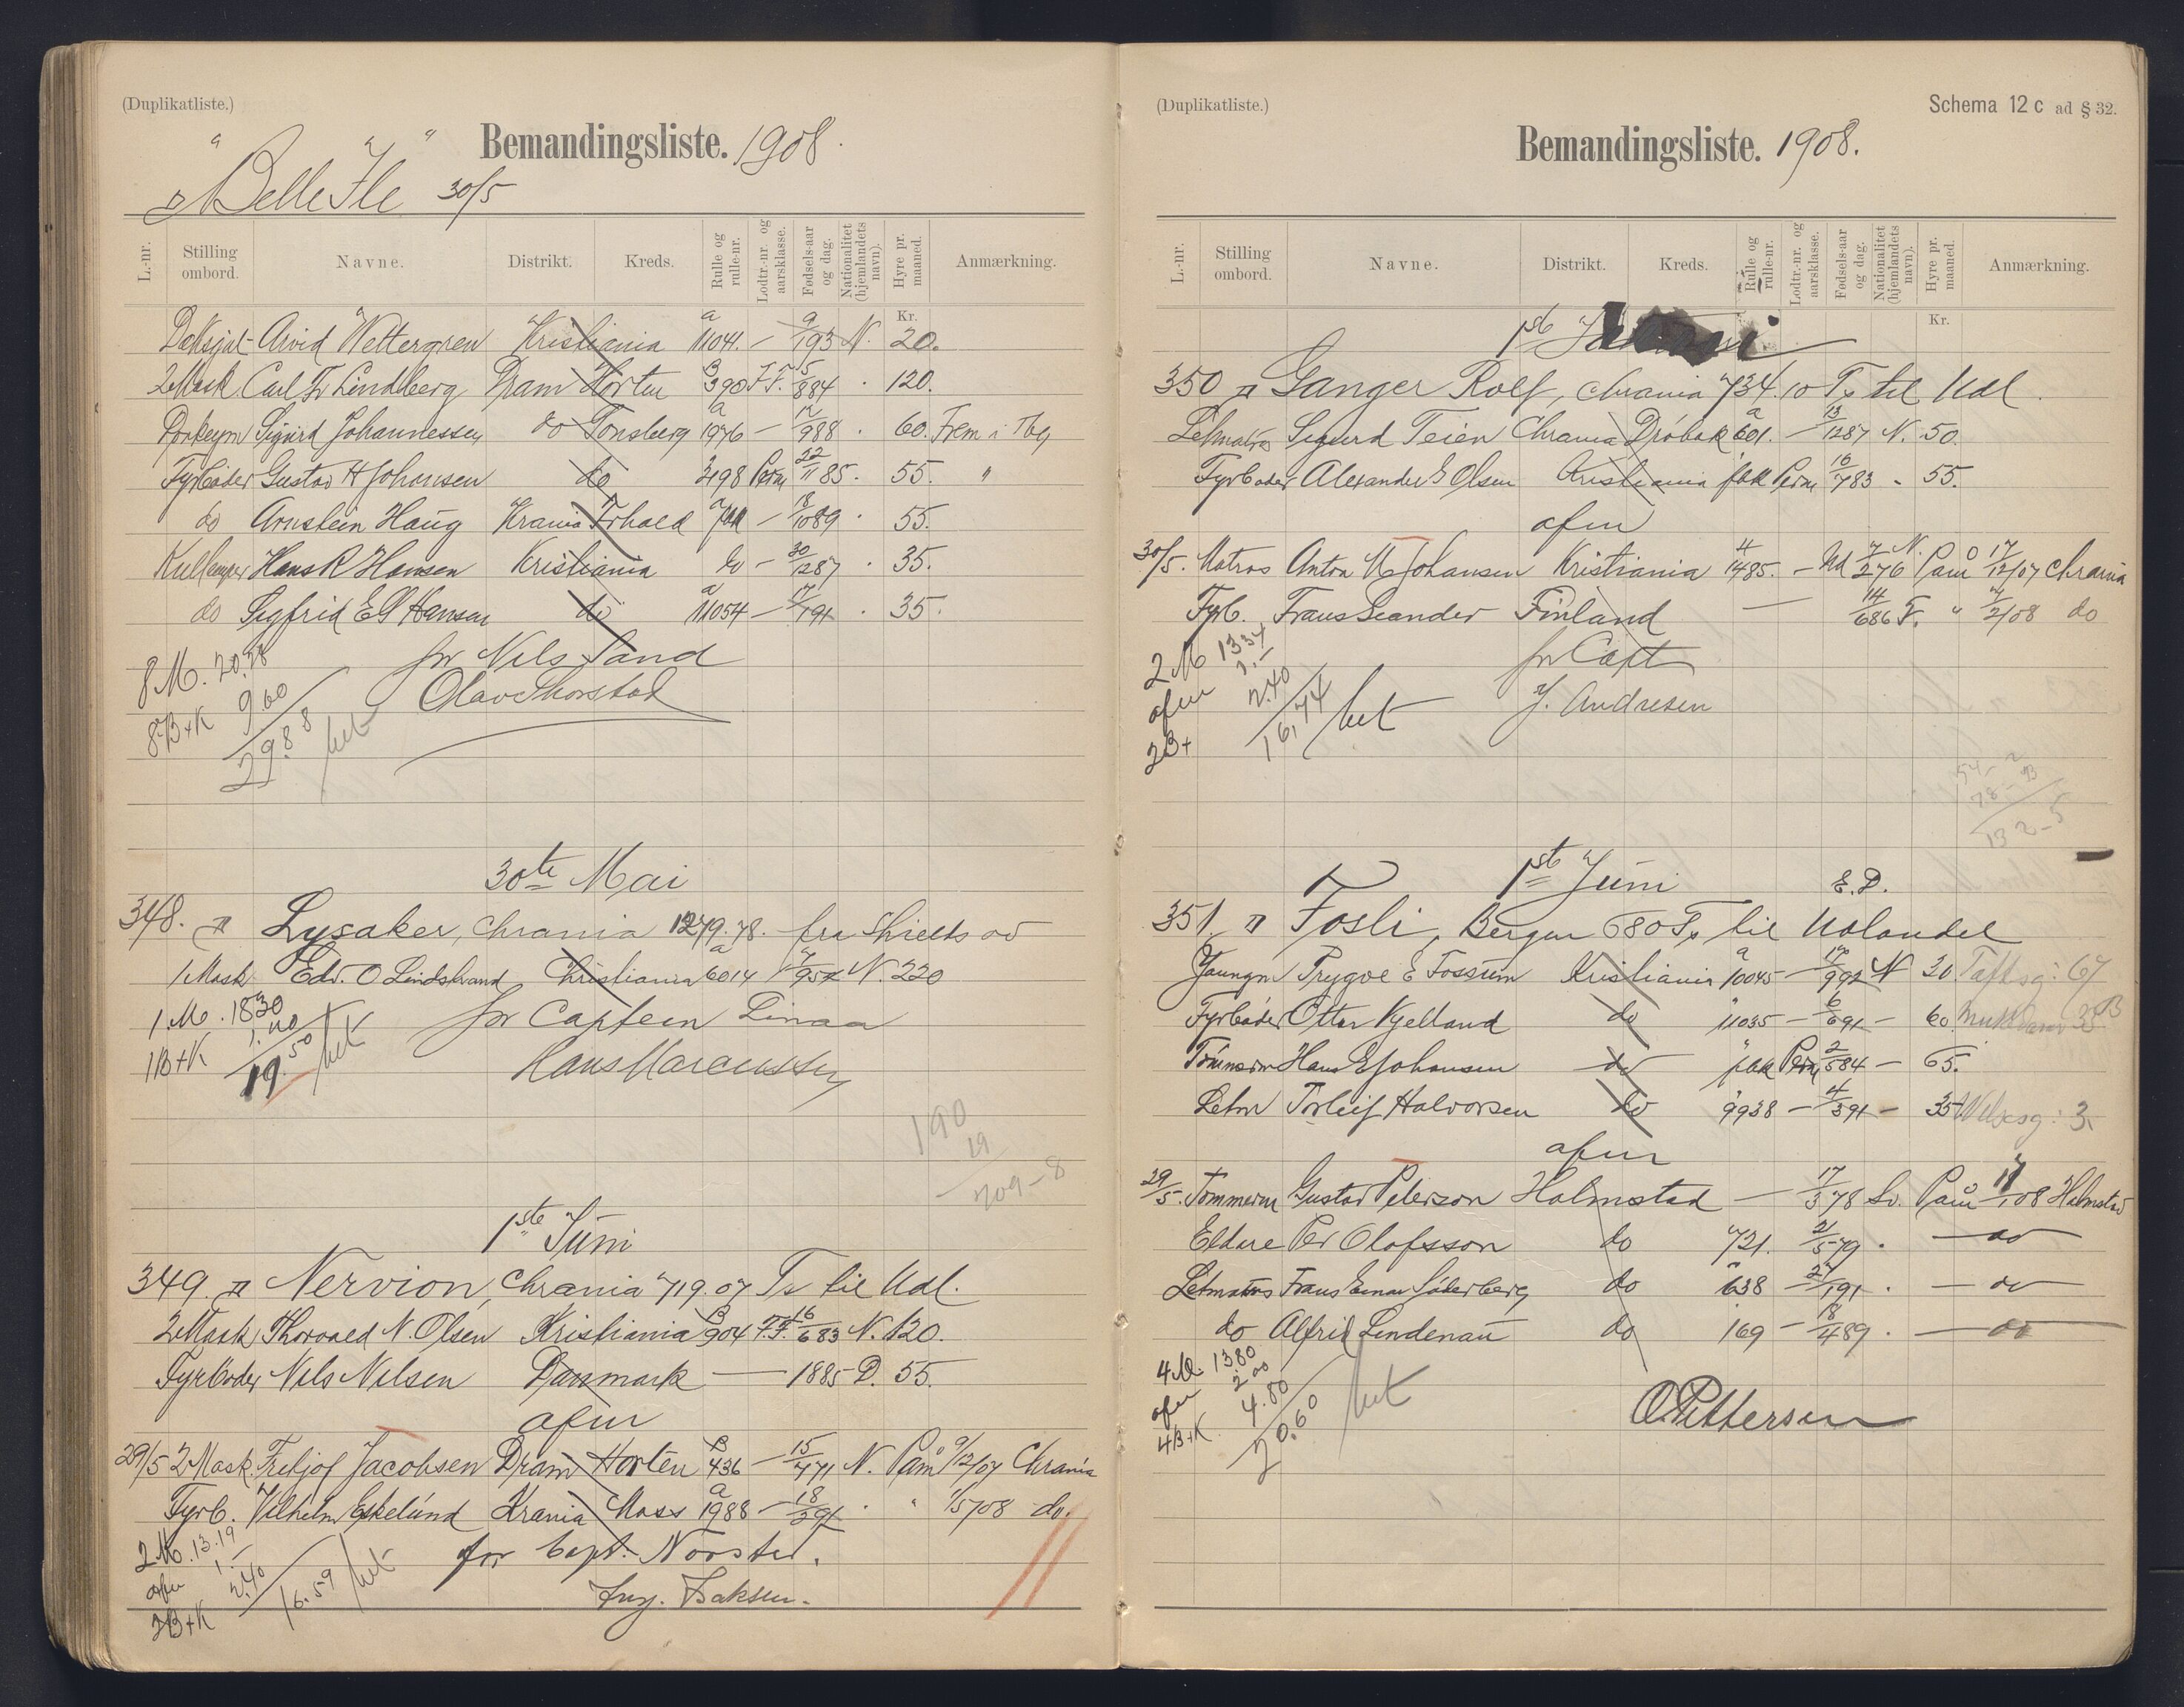 (Duplikatliste.)
Bemandingsliste. 1908.
"Belle Ile" 30/5
L.-nr. Stilling ombord. Navne. Distrikt. Kreds. Rulle og rulle-nr. Lodtr.-nr. og aarsklasse. Fødsels-aar og dag. Nationalitet (hjemlandets navn). Hyre pr. maaned. Anmærkning.
Kr.
Arvid Wettergren Kristiania a 11041. — 9/193 N. 20.
2 Mask. Carl Fr Lindberg Dram Horten B 390 F.F. 5/884 . 120.
Sigurd Johannessen do Tønsberg a 1976 — 12/988 . 60. Frem i Tbg
Fyrbøder Gustav H Johansen do 3498 Perm 22/1185 . 55. "
do Arnstein Haug Krania Frhald a — 13/1089 . 55.
Kullemper Hans R Hansen Kristiania do — 30/1287 . 35.
do Sigfrid E S Hansen do a 11054 — 17/191 . 35.
8 M. 20.28
for Nils Sand
8 B+K 9.60
Olav Thorstad
29.88
30te Mai
348. Lysaker, Chrania 1279.78. fra Shields av
1 Mask Edv. O Lindstrand Christiania a 6014 N. 220
1 M. 18.30
for Captein Linaa
1 B+K
19.50
Hans Marcussen
190
19
209-8
1ste Juni
349. Nervion, Chrania 719.07 Ts til Udl.
2 Mask Thorvald N. Olsen Kristiania B 904 F.F. 16/683 N. 120.
Fyrbøder Nils Nilsen Danmark — 1885 D. 55.
afm
29/5 2 Mask. Fritjof Jacobsen Dram Horten B 436 — 15/771 N. Påm 9/12/07 Chrania
Fyrb. Vilhelm Eskelund Krania Moss a 1988 — 18/391 . " 1/5/08 do.
2 M. 13.19
for Capt.
afm 1.-
2 B+K 2.40
16.59
(Duplikatliste.)
Schema 12 c ad § 32.
Bemandingsliste. 1908.
L.-nr. Stilling ombord. Navne. Distrikt. Kreds. Rulle og rulle-nr. Lodtr.-nr. og aarsklasse. Fødsels-aar og dag. Nationalitet (hjemlandets navn). Hyre pr. maaned. Anmærkning.
Kr.
1ste
350 Ganger Rolf, Chrania 734.10 Ts til Udl.
Letmatrs Sigurd Teien Chrania Drøbak a 601. — 13/1287 N. 50.
Fyrbøder Alexander E Olsen Kristiania Perm 16/783 " 55.
afm
30/5. Matros Anton M Johansen Kristiania 1485. — Ud 7/276 N. Påm 17/12/07 Chrania
Fyrb. Frans Seander Finland — 14/686 F. " 4/2/08 do
2 M 13.34
for Capt
afm 1.-
J. Andresen
2 B+ 2.40
16,74
132-5
1ste Juni E.D.
351. Fosli, Bergen 680 Ts til Udlandet
Jaungm Trygve E Fossum Kristiania a 10045 — 17/992 N 20.
Fyrbøder Otter Kjelland do 11035 — 6/691 — 60
Tømmerm Hans E Johansen do Perm 2/584 — 65.
Letm Torleif Halvorsen do 9938 — 4/391 — 35
afm
29/5. Tømmerm Gustav Peterson Halmstad — 17/378 Sv. Påm 08 Halmstad
Eldare Per Olofsson do 721. 21/579 . — do
Letmatrs Frans Einar Söderberg do 638 — 27/191 . — do
do Alfrid Lindenau do 169 — 18/489 . — do
4 M. 13.80
afm 2.00
4 B+K 4.80
O. Pettersen
20.60